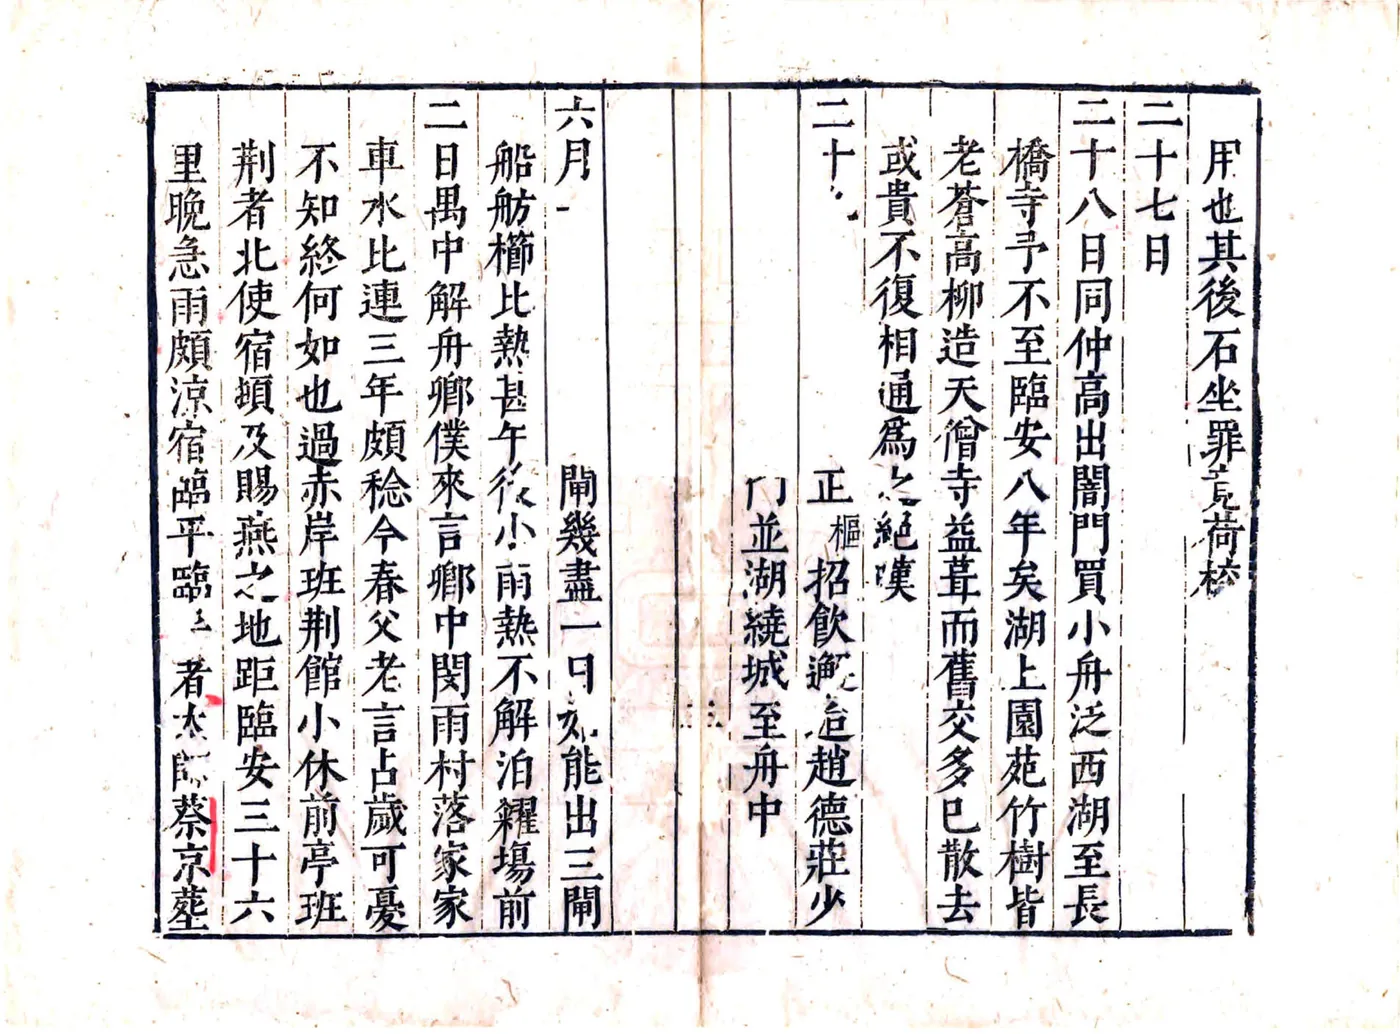 用也其後石坐罪竟荷校
二十七日
二十八日同仲高出闇門買小舟泛西湖至長
橋寺予不至臨安八年矣湖上園苑竹樹皆
老蒼高柳造天僧寺益葺而舊交多已散去
或貴不復相通爲之絶嘆
二十九 正樞招飲邂造趙德莊少
門並湖繞城至舟中
六月一 閘幾盡一日始能出三閘
船舫櫛比熱甚午後小雨熱不解泊糴場前
二日禺中解舟鄉僕來言鄉中閔雨村落家家
車水比連三年頗稔今春父老言占歲可憂
不知終何如也過赤岸班荆館小休前亭班
荆者北使宿頓及賜燕之地距臨安三十六
里晚急雨頗涼宿臨平臨 者太師蔡京葬